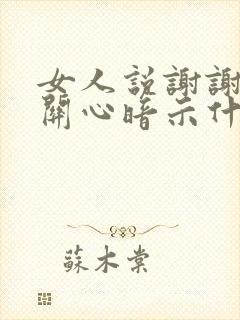 女人説謝謝
關心暗示什
蘇木棠